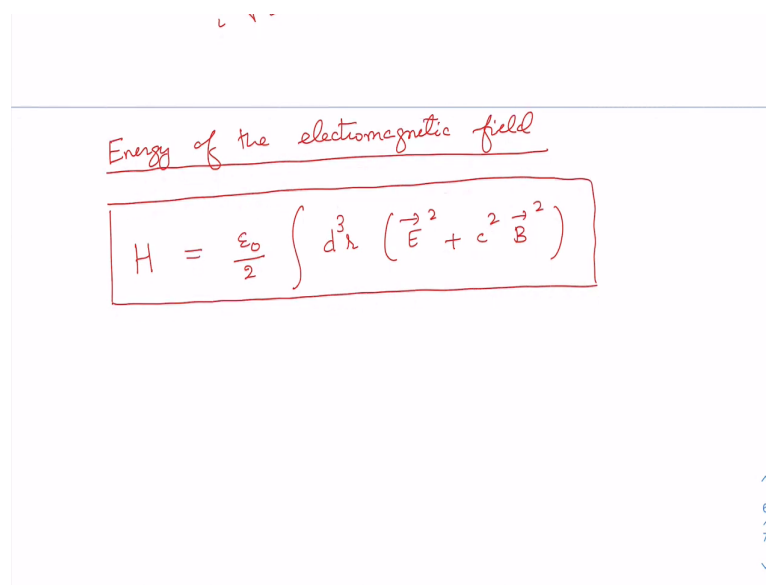 Energy of the electromagnetic field
H = ε₀/2 ∫ d³r (E⃗² + c² B⃗²)